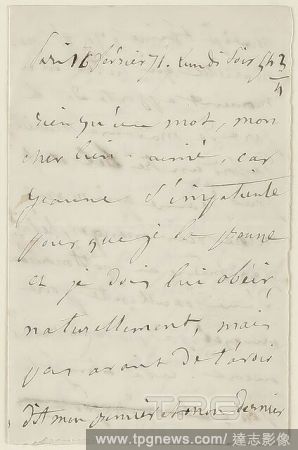 Paris 16 février 71. Lundi soir 9h 3/4
Rien qu'un mot, mon
cher bien-aimé, car
Jeanne s'impatiente
pour que je la prenne
et je dois lui obéir,
naturellement, mais
pas avant de t'avoir
dit mon premier et mon dernier
TPG
www.tpgnews.com/ 達志影像